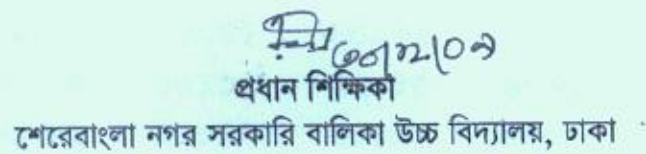 ৩০/১২/০৯
প্রধান শিক্ষিকা
শেরেবাংলা নগর সরকারি বালিকা উচ্চ বিদ্যালয়, ঢাকা